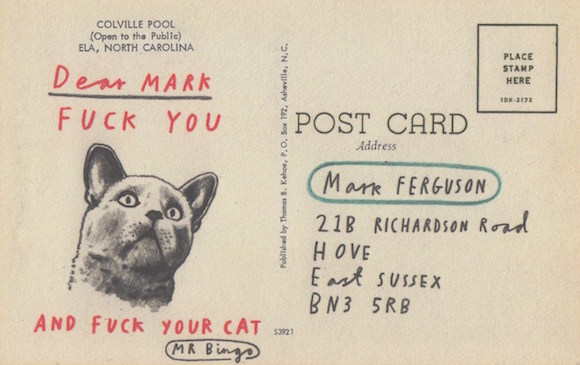 COLVILLE POOL
(Open to the Public)
ELA, NORTH CAROLINA
Dear MARK
FUCK YOU
AND FUCK YOUR CAT
MR Bingo
Published by Thomas B. Kehoe, P. O. Box 192, Asheville, N. C.
S3921
PLACE
STAMP
HERE
IDK-2172
POST CARD
Address
Mark FERGUSON
21B RICHARDSON Road
HOVE
East SUSSEX
BN3 5RB